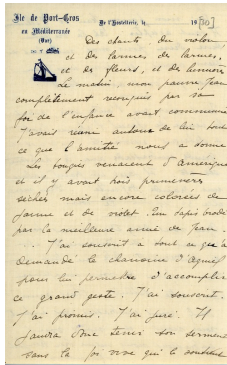 Ile de Port-Cros
en Méditerranée
(Var)
De l'Hostellerie, le 19 [30]
Des chants du violon
et des larmes de larmes,
et des fleurs, et de l'encens
Le matin, mon pauvre Jean
complètement reconquis par sa
foi de l'enfance avait communié
J'avais réuni autour de lui tout
ce que l'amitié nous a donné
Les bougies venaient d'Amérique
et il y avait trois primevères
sèches mais encore colorées de
jaune et de violet. Un tapis brodé
par la meilleure amie de Jean
... J'ai souscrit à tout ce qu'a
demandé le chanoine d'Agnel
pour lui permettre d'accomplir
ce grand geste. J'ai souscrit.
J'ai promis. J'ai juré. Il
faudra tenir son serment
sans la foi vive qui le soutient